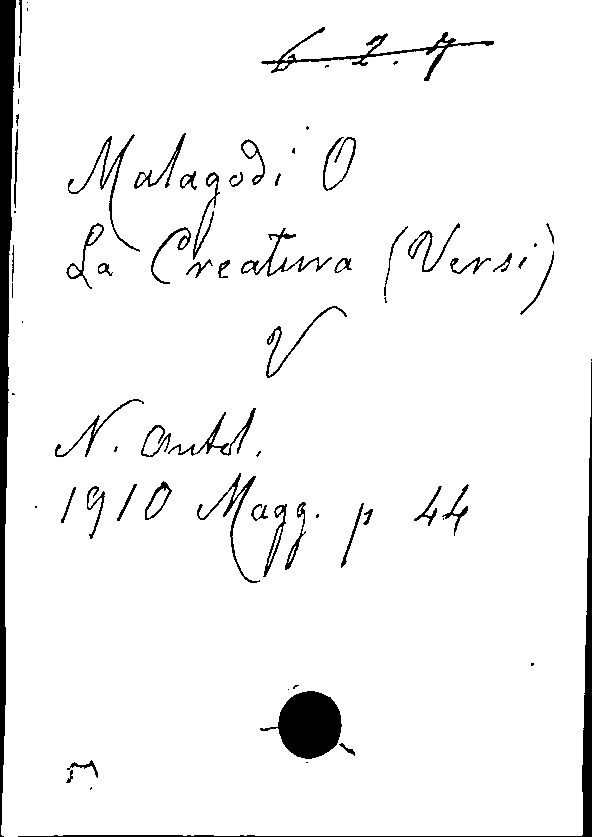 6.2.7
Malagodi O
La Creatura (Versi)
V
N. Antol.
1910 Magg. p 44